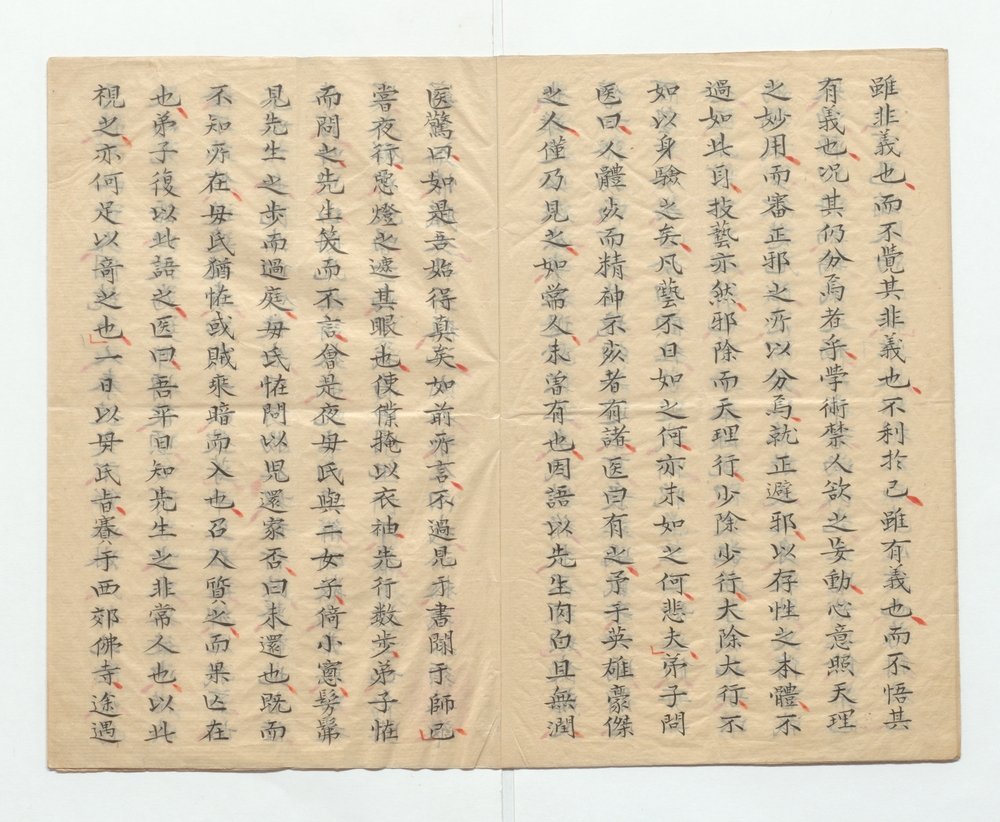 雖非義也而不覺其非義也不利於己雖有義也而不悟其
有義也况其仍分焉者乎學術禁人欲之妄動心意照天理
之妙用而審正邪之所以分焉就正避邪以存性之本體不
過如此耳技藝亦然邪除而天理行少除少行大除大行不
如以身驗之矣凡藝不曰如之何亦末如之何悲夫弟子問
医曰人體炎而精神不炎者有諸医曰有之予于英雄豪傑
之人僅乃見之如常人未曽有也因語以先生肉白且無潤
医驚曰如是吾始得真矣如前所言不過見于書聞于師已
嘗夜行患燈之遽其眼也使僕掩以衣袖先行数步弟子怪
而問之先生笑而不言會是夜毋氏與二女子倚小窓髣髴
見先生之歩而過庭毋氏怪問以児還家否曰未還也既而
不知所在毋氏猶怪或賊乘暗而入也召人質之而果亾在
也弟子復以此語之医曰吾平日知先生之非常人也以此
視之亦何足以竒之也一日以毋氏𭥍賽于西郊佛寺途遇